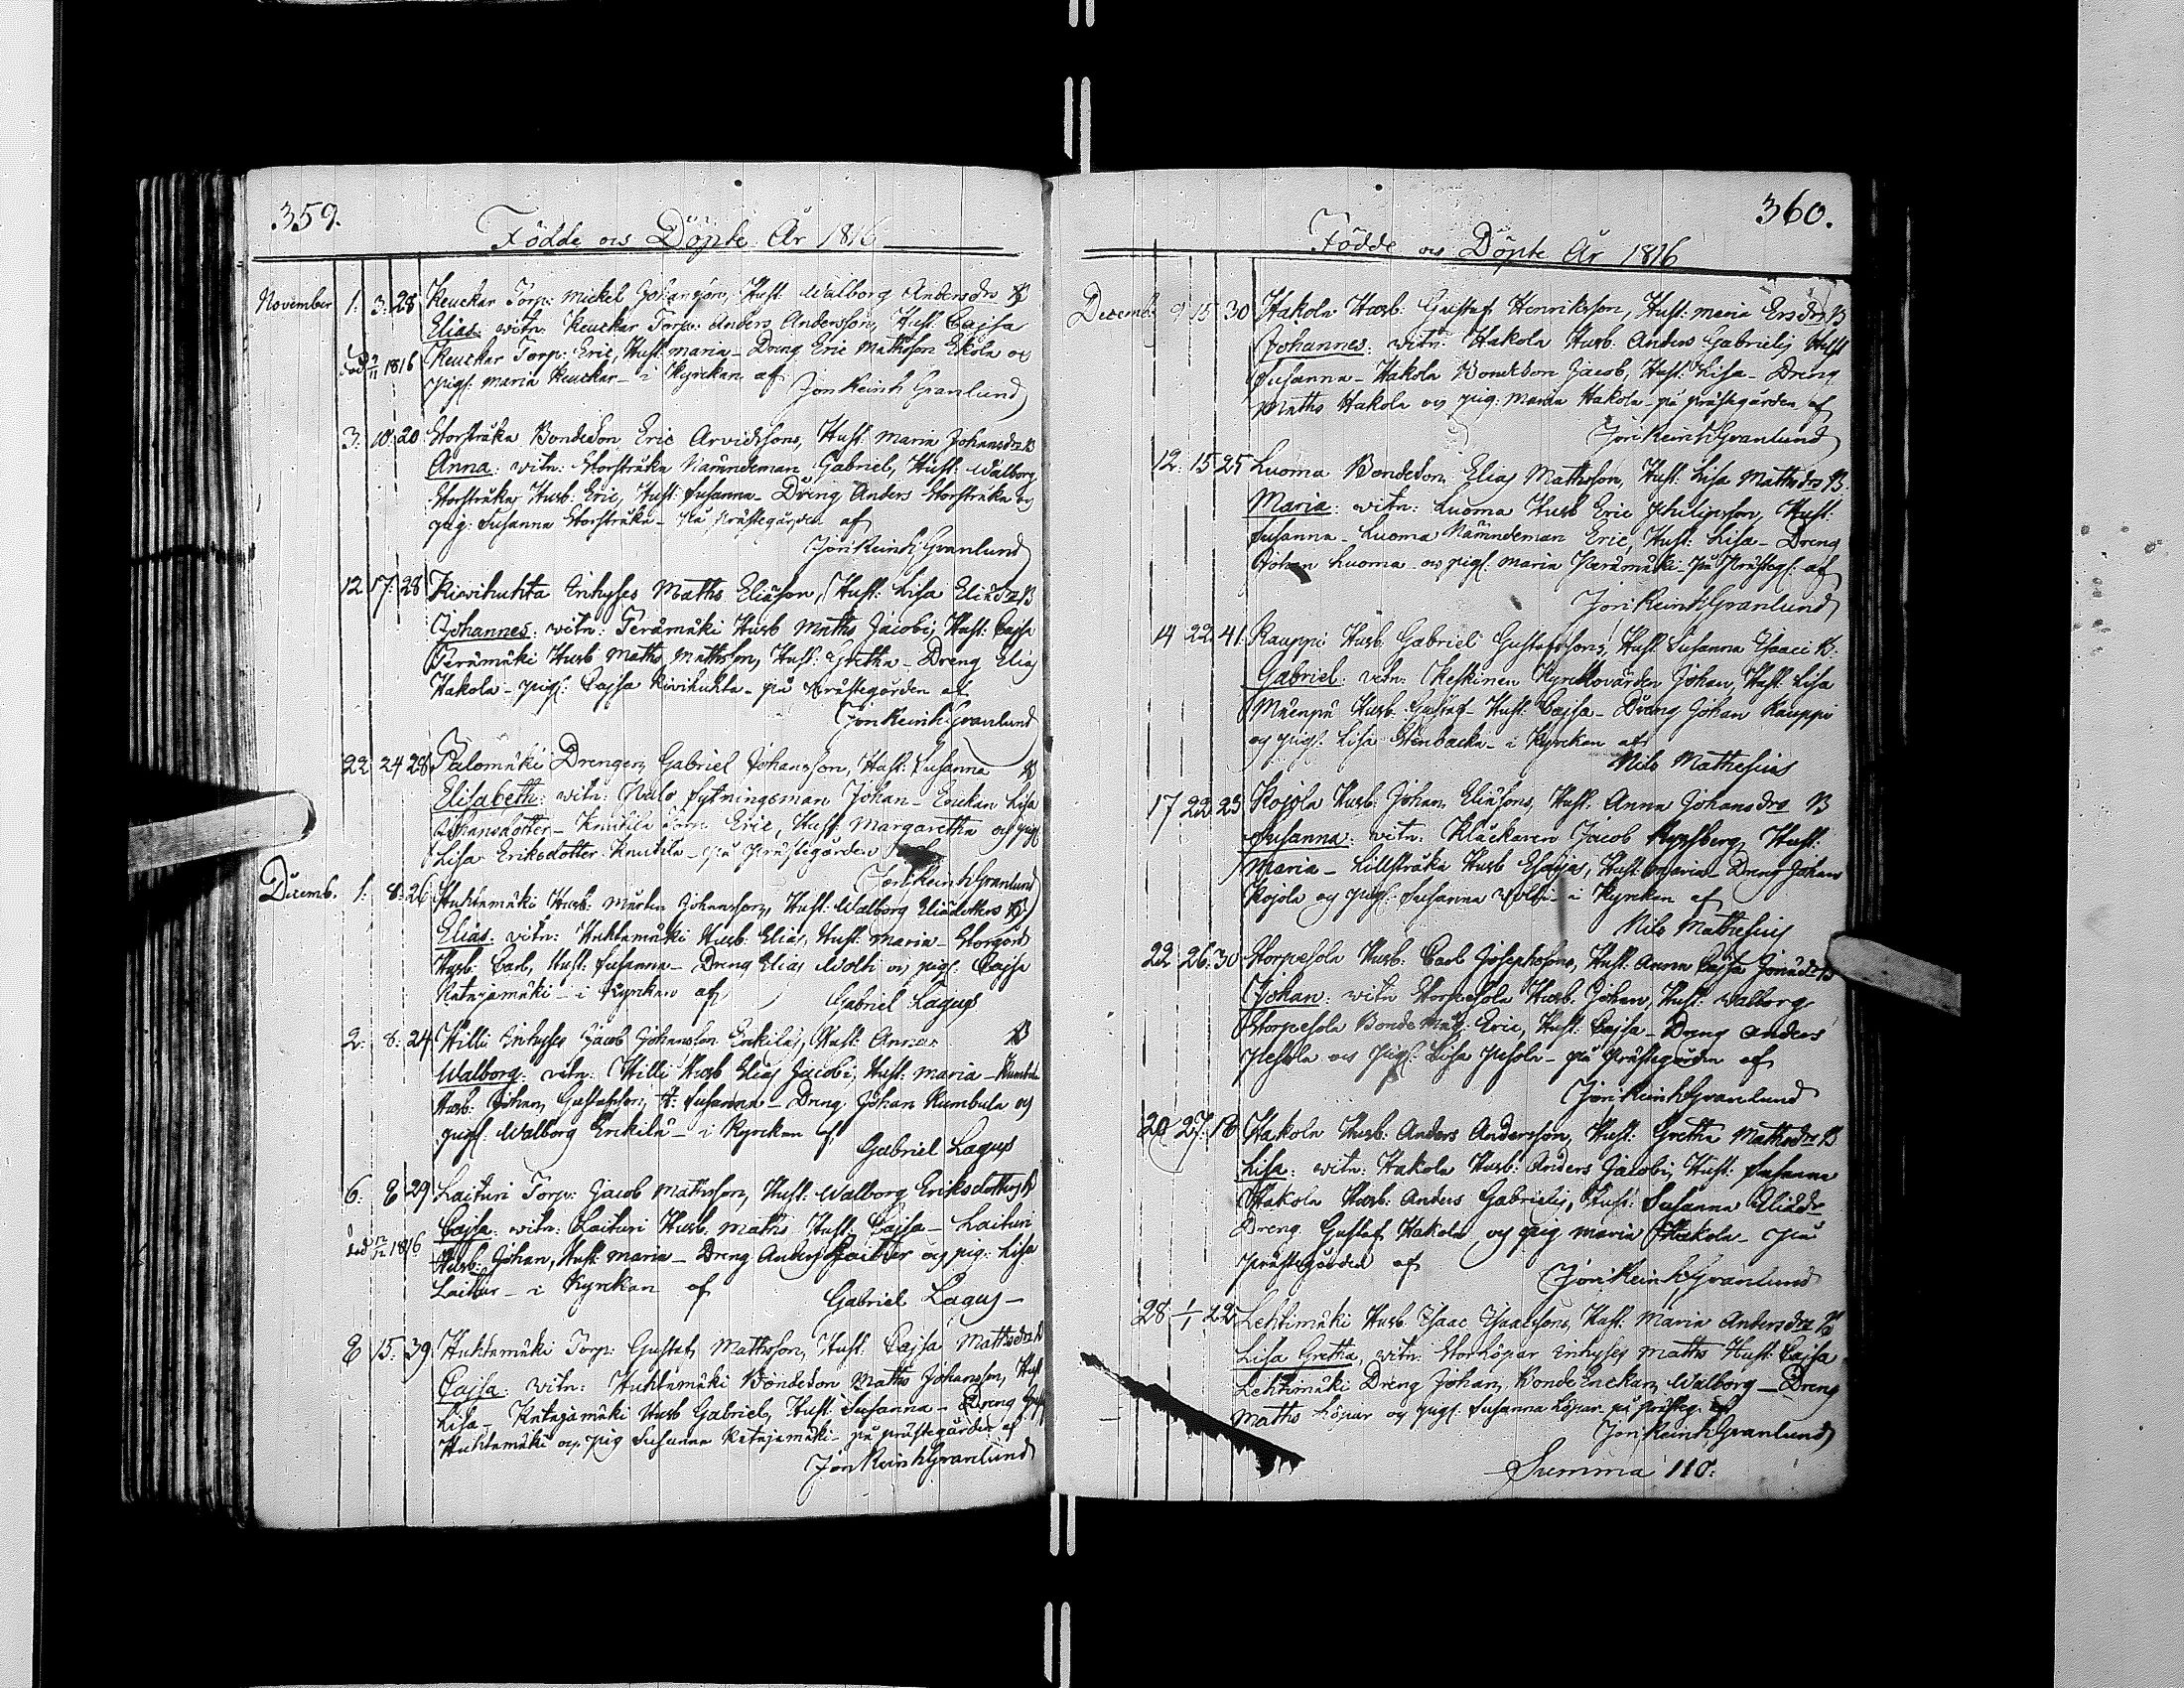 359.
Födde och Döpte År 1816
November 1. 3. 28 Keuckar Torp: Mickel Johansson, Hust: Walborg Andersdr B
Elias: vitn: Keuckar Torp: Anders Andersson, Hust: Cajsa
död 1816 Keuckar Torp: Eric, Hust: Maria - Dreng Eric Mathsson Ekola och
pig: Maria Keuckar - i Kyrckan af Jon Reinh Granlund
3. 10. 20 Storstråka Bondeson Eric Arvidssons, Hust: Maria Johansdr B
Anna: vitn: Storstråka Nämndeman Gabriel, Hust: Walborg
Storstråka Husb: Eric, Hust: Susanna - Dreng Anders Storstråka och
pig: Susanna Storstråka - på Prästegården af
Jon Reinh Granlund
12 17. 28 Kivihuhta Inhyses Maths Eliasson, Hust: Lisa Eliædr B
Johannes: vitn: Perämäki Husb Maths Jacobi, Hust: Cajsa
Perämäki Husb Maths Mathsson, Hust: Gretha - Dreng Elias
Hakola - pig: Cajsa Kivihuhta - på Prästegården af
Jon Reinh Granlund
22 24 28 Palomäki Drengen Gabriel Johansson, Hust: Susanna B
Elisabeth: vitn: Palo Fytningsman Johan - Enckan Lisa
Johansdotter - Knubila Torp: Eric, Hust: Margaretha och pig:
Lisa Eriksdotter Knubila - på Prästegården
Jon Reinh Granlund
Decemb. 1. 8. 26 Huhtamäki Husb: Mårten Johansson, Hust: Walborg Eliædotters B
Elias: vitn: Huhtamäki Husb: Elias, Hust: Maria - Storgård
Husb: Carl, Hust: Susanna - Dreng Elias Wolti och pig: Cajsa
Katajamäki - i Kyrckan af Gabriel Lagus
2. 8. 24 Hilli Inhyses Jacob Johansson Enkilä, Hust: Anna B
Walborg: vitn: Hilli Husb Elias Jacobi, Hust: Maria - Kumbula
Husb: Johan Gustafsson, H: Susanna - Dreng Johan Kumbula och
pig: Walborg Enkilä - i Kyrckan af Gabriel Lagus
6. 8 29 Laituri Torp: Jacob Mathsson, Hust: Walborg Eriksdotters B
Cajsa: vitn: Laituri Husb. Maths Hust: Cajsa - Laituri
död 12/12 1816 Husb: Johan, Hust: Maria - Dreng Anders Laitur och pig: Lisa
Laitur - i Kyrckan af Gabriel Lagus -
8 15. 39. Huhtamäki Torp: Gustaf Mathsson, Hust: Cajsa Mathsdr B
Cajsa: vitn: Huhtamäki Bondeson Maths Johansson, Hust
Lisa - Katajamäki Husb Gabriel, Hust: Susanna - Dreng
Huhtamäki och pig Susanna Katajamäki - på prästegården af
Jon Reinh Granlund
360.
Födde och Döpte År 1816
Decemb. 9 15 30 Hakola Husb: Gustaf Henriksson, Hust: Maria Ersdr B
Johannes: vitn: Hakola Husb. Anders Gabrielis Hust
Susanna - Hakola Bondeson Jacob, Hust: Lisa - Dreng
Maths Hakola och pig: Maria Hakola - på prästegården af
Jon Reinh Granlund
12. 15 25 Luoma Bondeson Elias Mathsson, Hust: Lisa Mathsdr B.
Maria: vitn: Luoma Husb Eric Philipsson, Hust:
Susanna - Luoma Nämndeman Eric, Hust: Lisa - Dreng
Johan Luoma och pig: Maria Perämäki på Prästeg: af
Jon Reinh Granlund
14 22 41. Kauppi Husb: Gabriel Gustafssons, Hust: Susanna Isaaci B.
Gabriel: vitn: Keskinen Kyrckovärden Johan, Hust: Lisa
Mäenpä Husb: Gustaf - Hust: Cajsa - Dreng Johan Kauppi
och pig: Lisa Stenbacka - i Kyrckan af
Nils Mathesius
17 22 23 Kojola Husb: Johan Eliæsons, Hust: Anna Johansdr B
Susanna: vitn: Klåckaren Jacob Hust:
Maria - Lillstråka Husb Esaias, Hust: Maria - Dreng Johan
Kojola och pig: Susanna Wolti - i Kyrckan af
Nils Mathesius
22. 26. 30 Storpesola Husb: Carl Josephssons, Hust: Anna Cajsa Jonædr B
Johan: vitn Storpesola Husb: Johan, Hust: Walborg
Storpesola Bonde Måg: Eric, Hust: Cajsa - Dreng Anders
Pesola och pig: Lisa Pesola - på Prästegården af
Jon Reinh Granlund
20 27. 18 Hakola Husb: Anders Andersson, Hust: Gretha Mathsdr B
Lisa: vitn: Hakola Husb: Anders Jacobi, Hust: Susanna
Hakola Husb: Anders Gabrielis, Hust: Susanna Eliædr
Dreng Gustaf Hakola och pig Maria Hakola - på
prästegården af Jon Reinh Granlund
28 1/1 22 Lehtimäki Husb: Isaac Isaacssons, Hust: Maria Andersdr B
Lisa Gretha, vitn: Storlöpar Inhyses Maths Hust: Cajsa
Lehtimäki Dreng Johan, Bonde Enckan Walborg - Dreng
Maths Löpar och pig: Susanna Löpar på Prästeg: af
Jon Reinh Granlund
Summa 110.